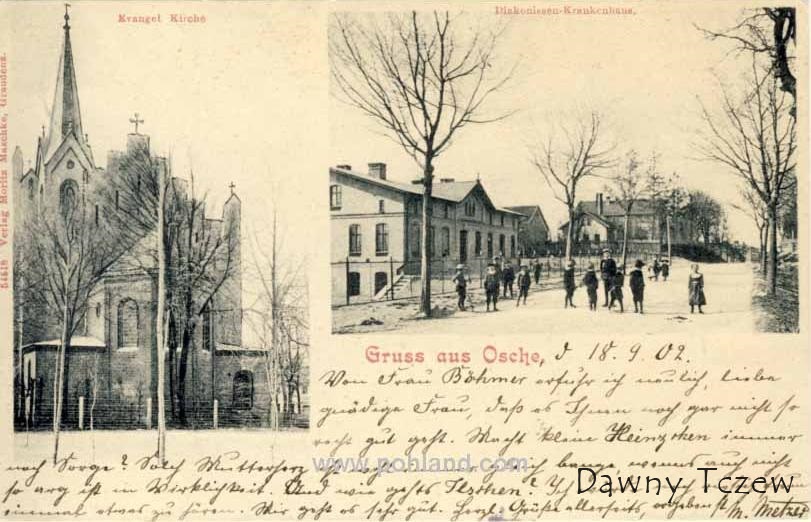 Evangel Kirche
Diakonissen-Krankenhaus.
54518 Verlag Moritz Maschke, Graudenz.
Gruss aus Osche, d 18. 9. 02.
Von Frau Böhmer erfuhr ich neulich, liebe
gnädige Frau, daß es Ihnen noch gar nicht so
recht gut geht. Macht kleine Heinzchen immer
noch Sorge? Solch Mutterherz ich bange, wenns auch nicht
so arg ist in Wirklichkeit. Und wie gehts Ilschen? Ich
einmal etwas zu hören. Mir geht es sehr gut. Herzl. Grüße allerseits, ergebenst
M. Metzer
www.pohland.com
Dawny Tczew